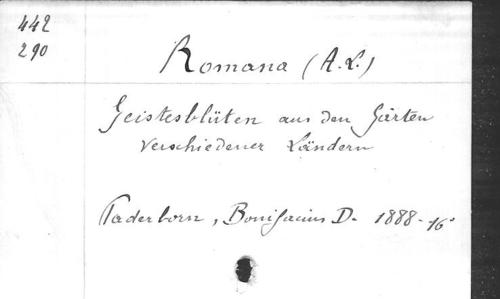 442
290
Romana (A.L.)
Geistesblüten aus den Gärten
verschiedener Ländern
Paderborn, Bonifacius D. 1888-16°